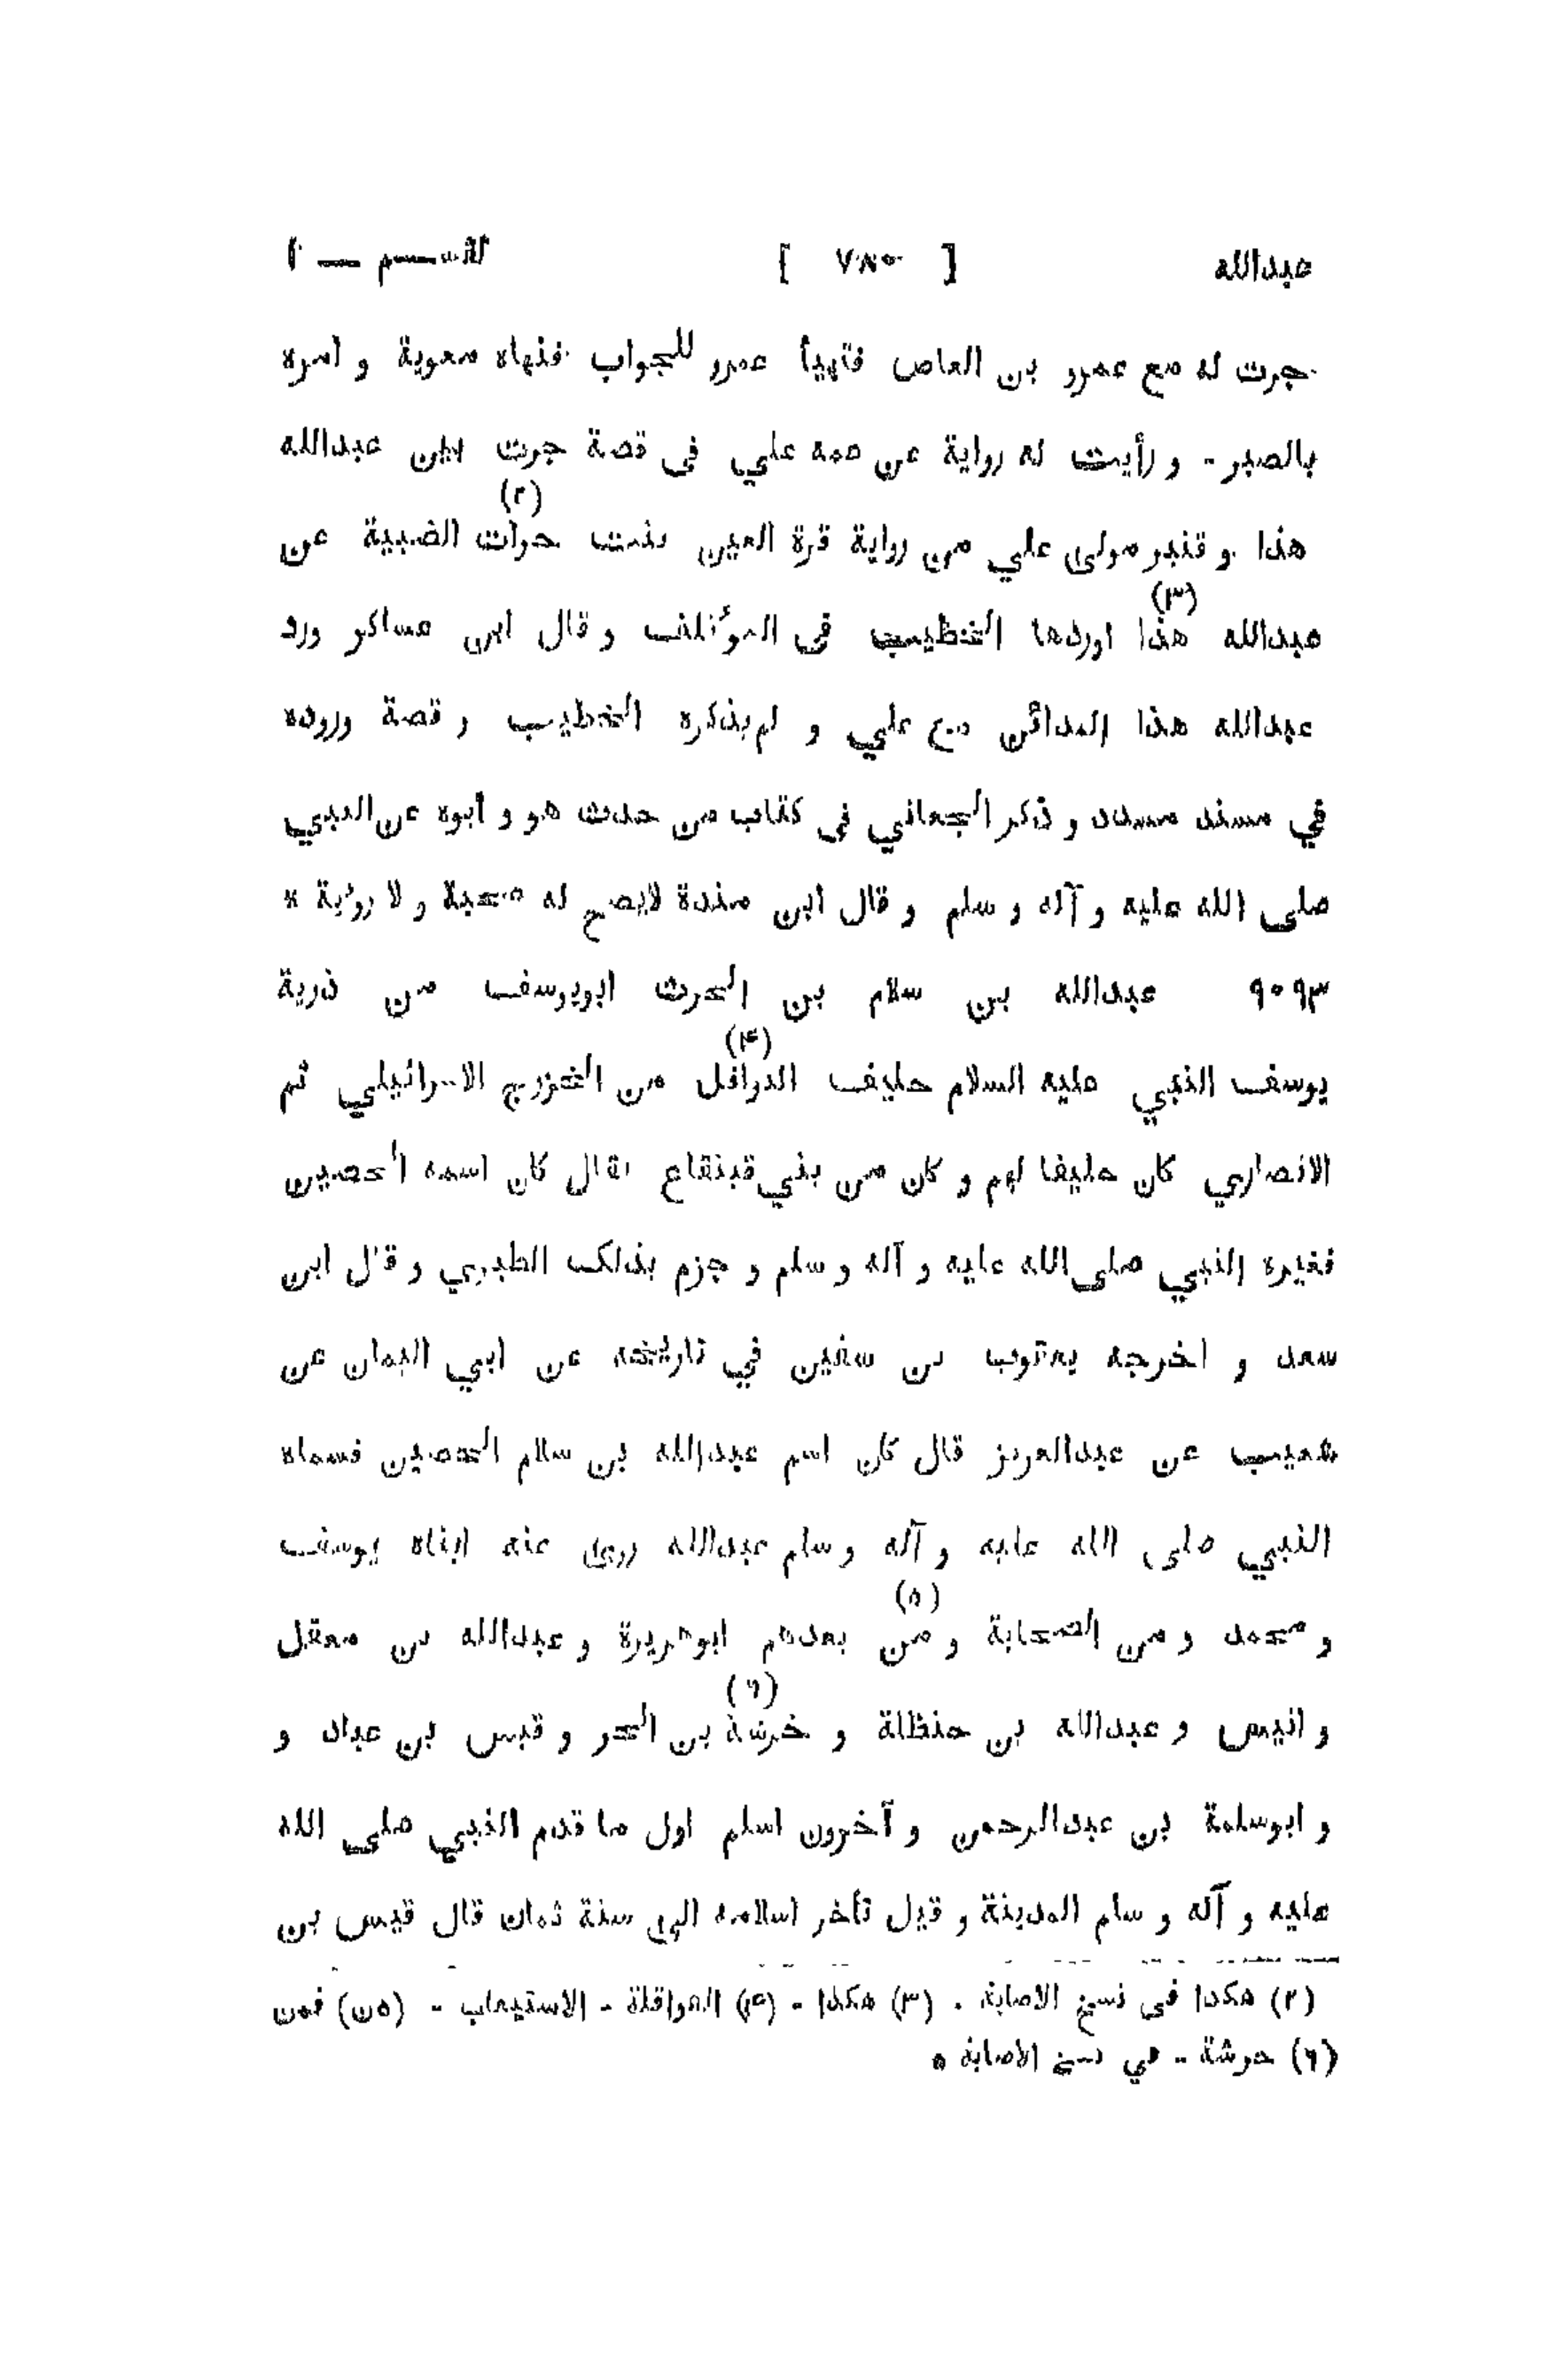 عبدالله [ ٧٨٠ ] القسم — ١
جرت له مع عمرو بن العاص فتهيأ عمرو للجواب فنهاه معوية و أمره
بالصبر - و رأيت له رواية عن عمه علي فى قصة جرت بين عبدالله
هذا و قنبر مولى علي من رواية قرة العين بنت حرات (٢) الضبية عن
عبدالله هذا (٣) اوردها الخطيب فى المؤتلف و قال ابن عساكر ورد
عبدالله هذا المدائن مع علي و لم يذكره الخطيب و قصة وروده
في مسند مسدد و ذكر الجعابي فى كتاب من حدث هو و أبوه عن النبي
صلى الله عليه و آله و سلم و قال ابن مندة لايصح له صحبة و لا روئية *
٩٠٩٣ عبدالله بن سلام بن الحرث ابويوسف من ذرية
يوسف النبي عليه السلام حليف النوافل (۴) من الخزرج الاسرائيلي ثم
الانصاري كان حليفا لهم و كان من بني قينقاع يقال كان اسمه الحصين
فغيره النبي صلى الله عليه و آله و سلم و جزم بذلك الطبري و قال ابن
سعد و اخرجه يعقوب بن سفين في تاريخه عن ابي اليمان عن
شعيب عن عبدالعزيز قال كان اسم عبدالله بن سلام الحصين فسماه
النبي صلى الله عليه و آله و سلم عبدالله روى عنه ابناه يوسف
و محمد و من الصحابة و من (٥) بعدهم ابوهريرة و عبدالله بن معقل
و انيس و عبدالله بن حنظلة و خرشة (٦) بن الحر و قيس بن عباد و
و ابوسلمة بن عبدالرحمن و آخرون اسلم اول ما قدم النبي صلى الله
عليه و آله و سلم المدينة و قيل تأخر اسلامه الى سنة ثمان قال قيس بن
(٢) هكذا فى نسخ الاصابة . (٣) هكذا - (۴) القواقلة - الاستيعاب - (٥ن) فمن
(٦) حرشة - في نسخ الاصابة *